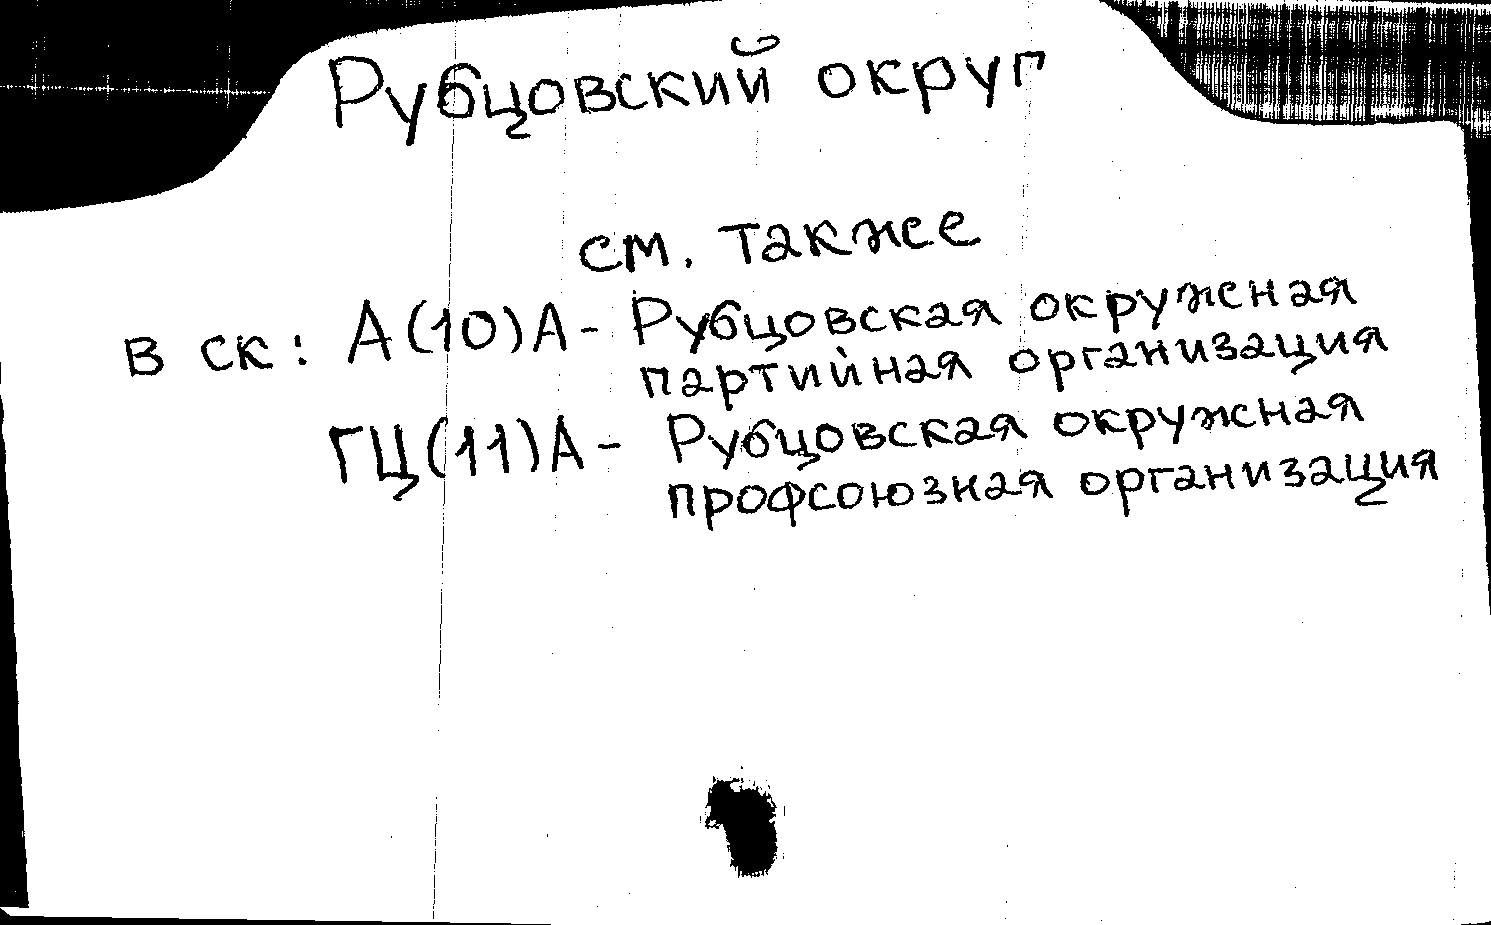 Рубцовский округ
см. также
в ск: А(10)А - Рубцовская окружная
партийная организация
ГЦ(11)А - Рубцовская окружная
профсоюзная организация